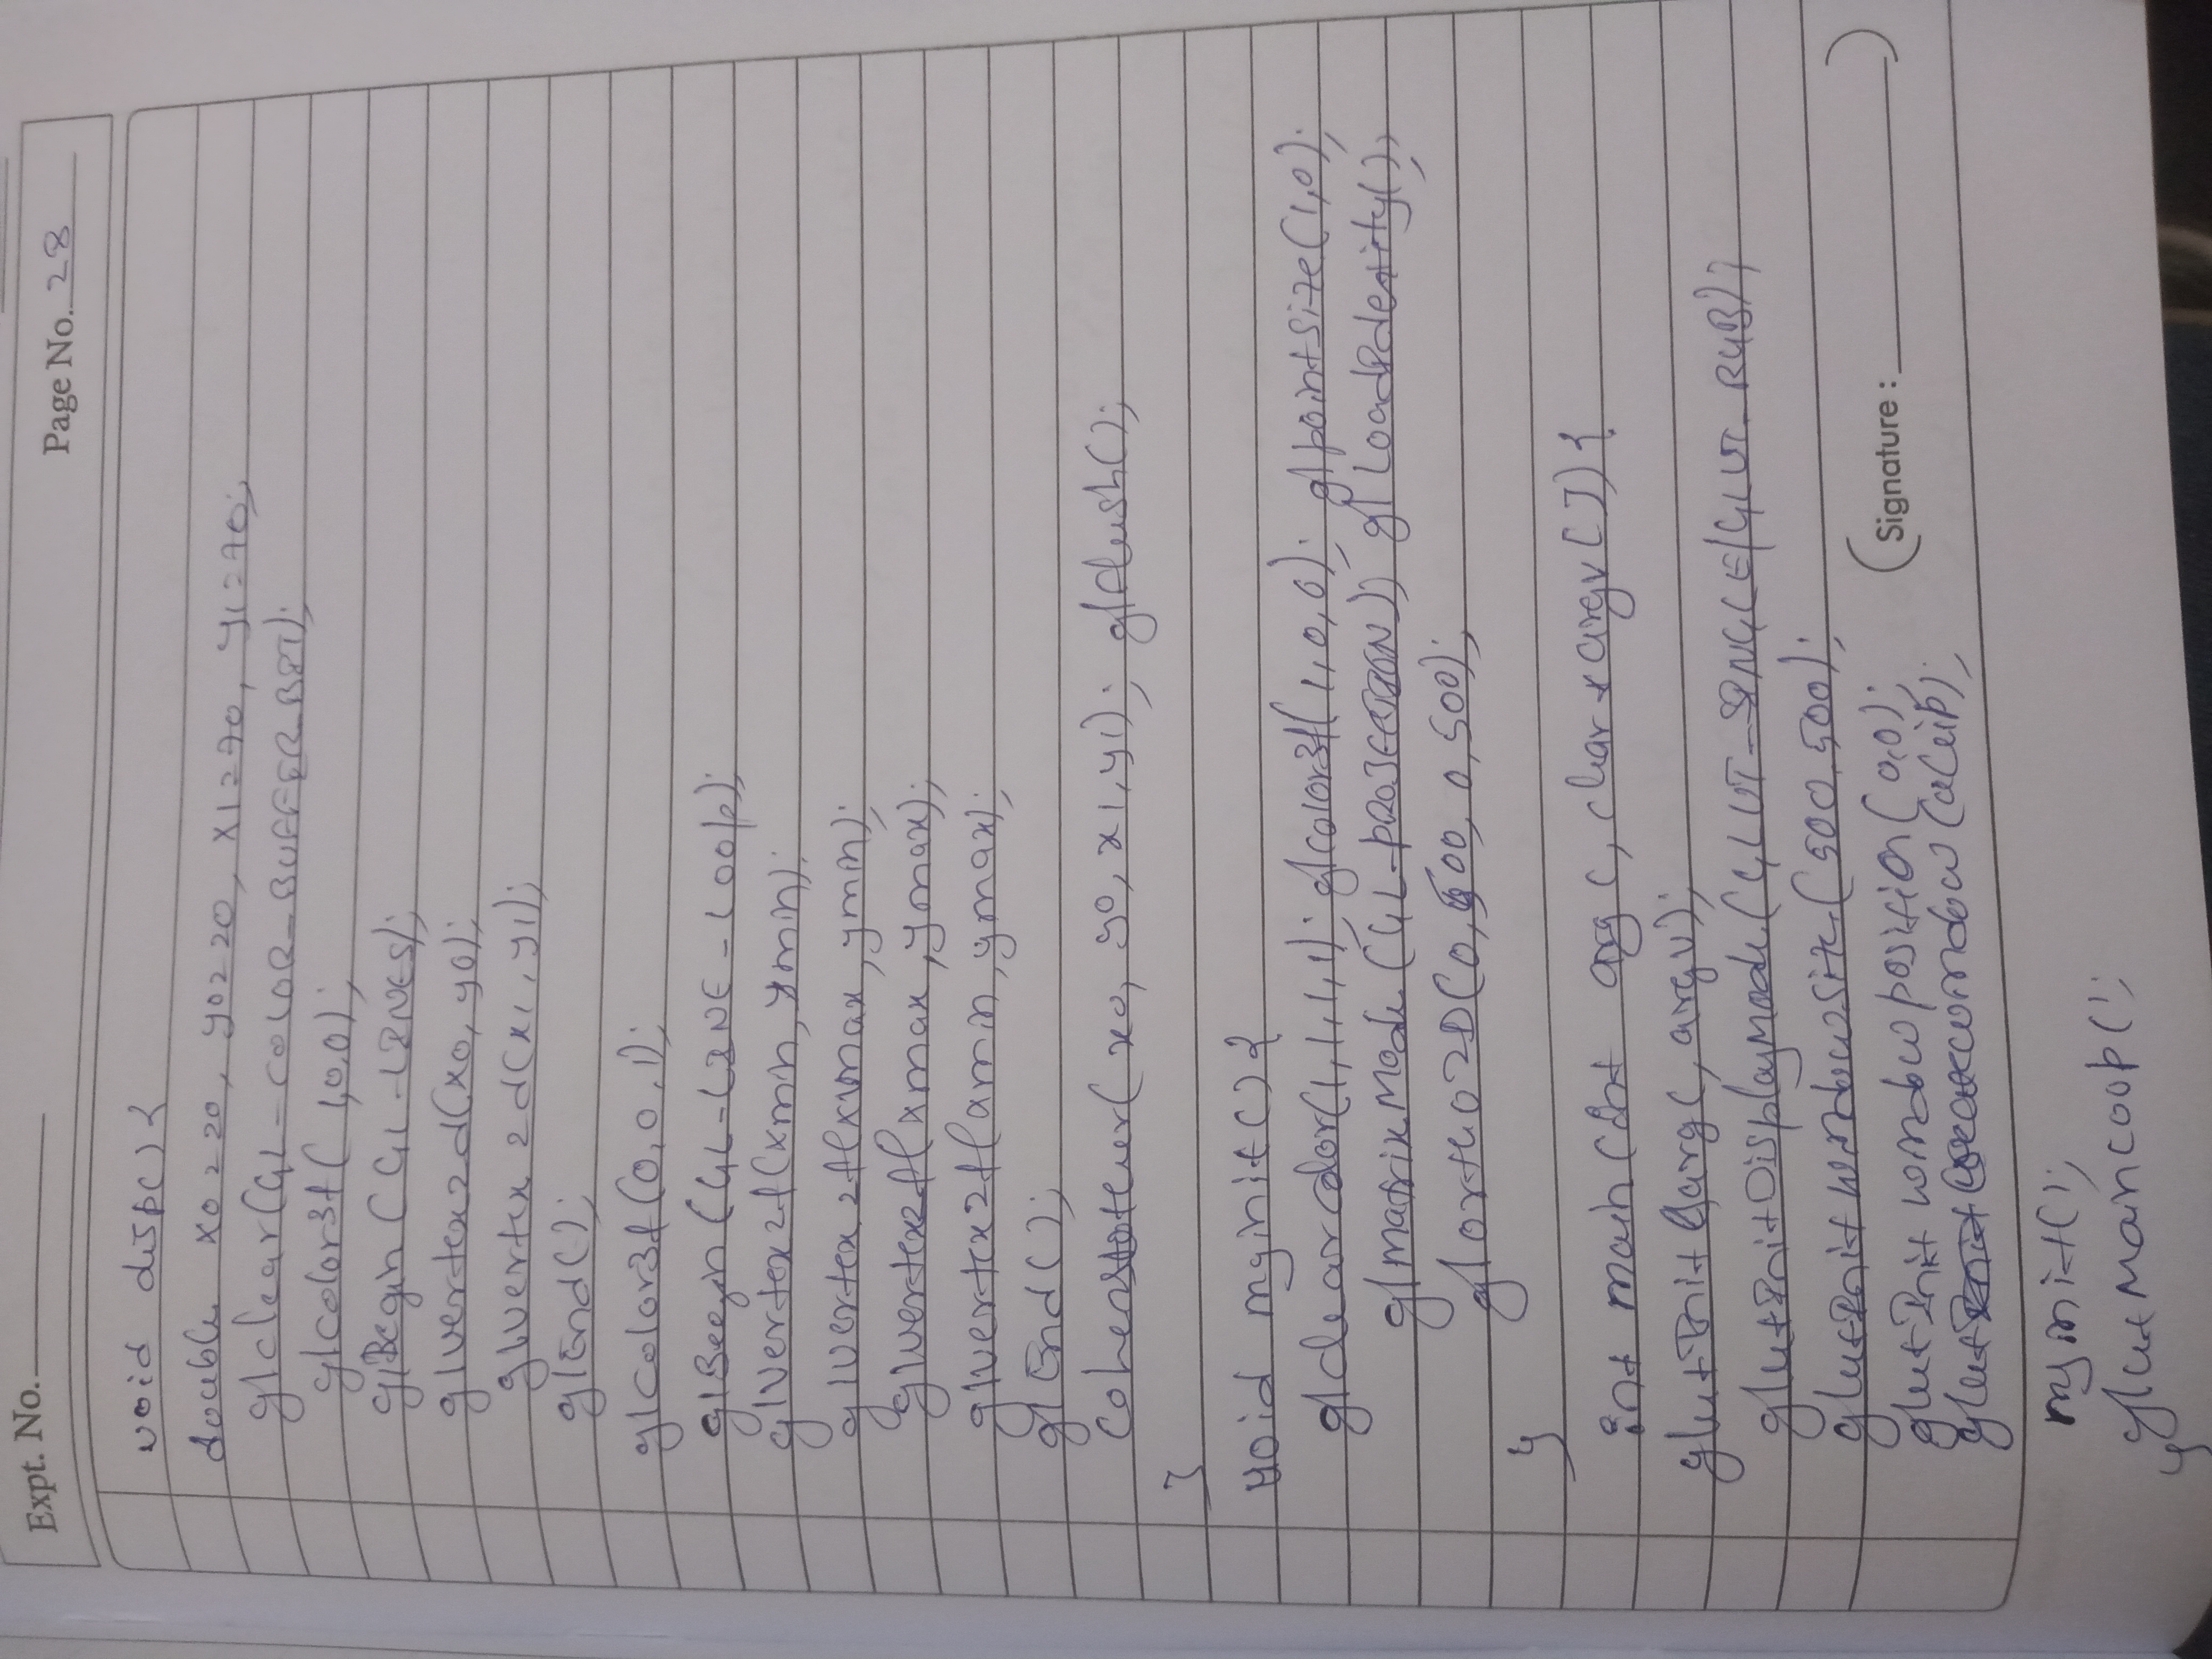 Expt. No.
Page No. 28
void disp() {
double x0=20, y0=20, x1=270, y1=270;
glclear(GL_COLOR_BUFFER_BIT);
glcolor3f(1,0,0);
glBegin(GL_LINES);
glvertex2d(x0,y0);
glvertex2d(x1,y1);
glEnd();
glcolor3f(0,0,1);
glBegin(GL_LINE_Loop);
glvertex2f(xmin,ymin);
glvertex2f(xmax,ymin);
glvertex2f(xmax,ymax);
glvertex2f(xmin,ymax);
glEnd();
(x0,y0,x1,y1); glflush();
}
void myinit() {
glclearcolor(1,1,1,1); glcolor3f(1,0,0); glpointsize(1,0);
glmatrixMode(GL_PROJECTION); glLoadIdentity();
glortho2D(0,500,0,500);
}
int main(int argc, char * argv[]) {
glutInit(&argc, argv);
glutInitDisplayMode(GLUT_SINGLE|GLUT_RGB);
glutInitWindowSize(500,500);
glutInitwindowposition(0,0);
myinit();
glutMainLoop();
}
(Signature : )